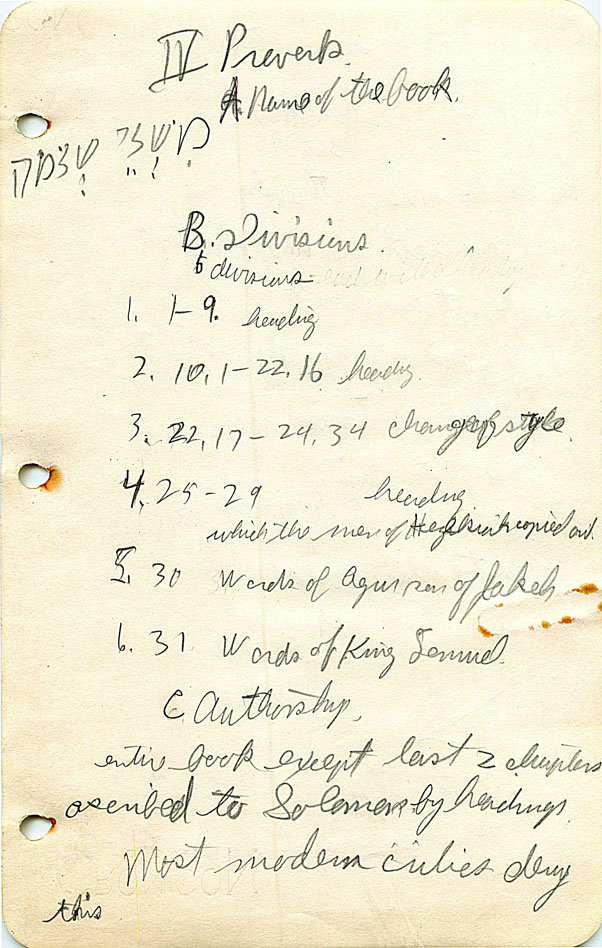 IV Proverbs.
A. Name of the book.
משלי שלמה
B. Divisions.
6 divisions
1. 1-9. heading
2. 10,1-22,16 heading.
3. 22,17-24,34 change of style.
4. 25-29 heading
which the men of Hezekiah copied out.
5. 30 Words of Agur son of Jakeh
6. 31. Words of King Lemuel.
C. Authorship.
entire book except last 2 chapters
ascribed to Solomon by headings.
Most modern critics deny
this